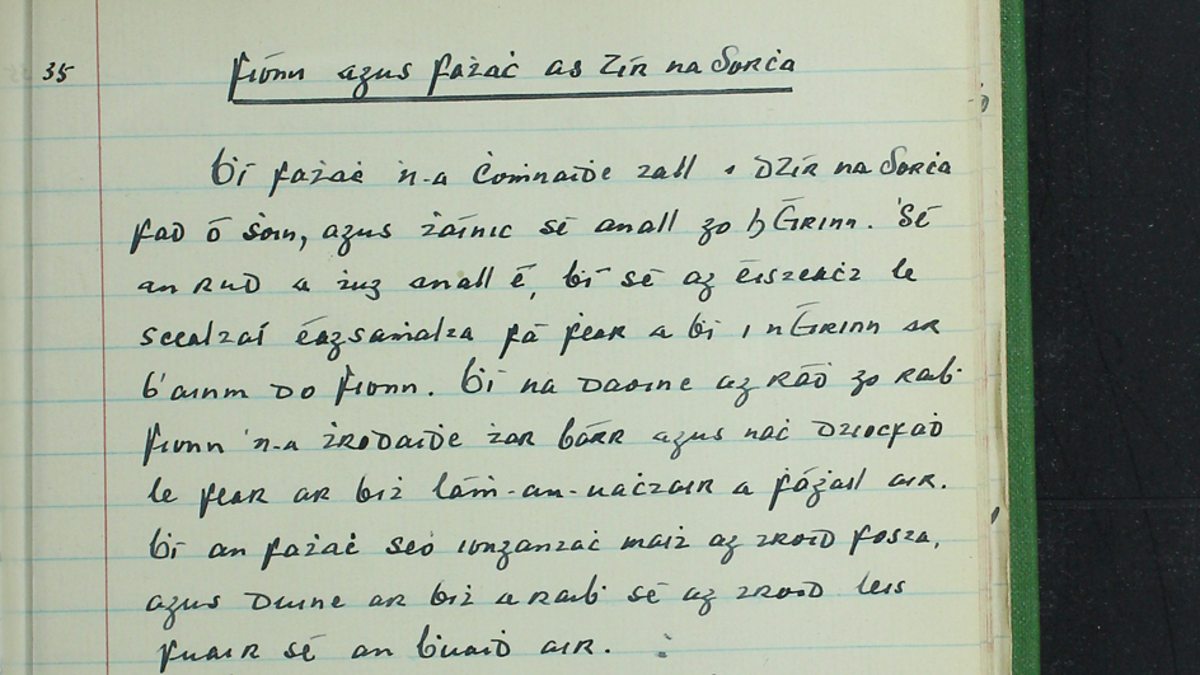 35 Fionn agus Faṫaċ as Tír na Sorċa
Ḃí faṫaċ 'n-a ċoṁnaiḋe ṫall i dTír na Sorċa
fad ó ṡoin, agus ṫáinic sé anall go hÉirinn. 'Sé
an rud a ṫug anall é, ḃí sé ag éisteaċt le
scealtaí éagsaṁalta fá ḟear a ḃí i nÉirinn ar
b'ainm do Ḟionn. Ḃí na daoine ag ráḋ go raiḃ
Fionn 'n-a ṫrodaiḋe ṫar bárr agus naċ dtiocfaḋ
le fear ar biṫ láṁ-an-uaċtair a ḟáġail air.
Ḃí an faṫaċ seo iongantaċ maiṫ ag troid fosta,
agus duine ar biṫ a raiḃ sé ag troid leis
fuair sé an ḃuaiḋ air.